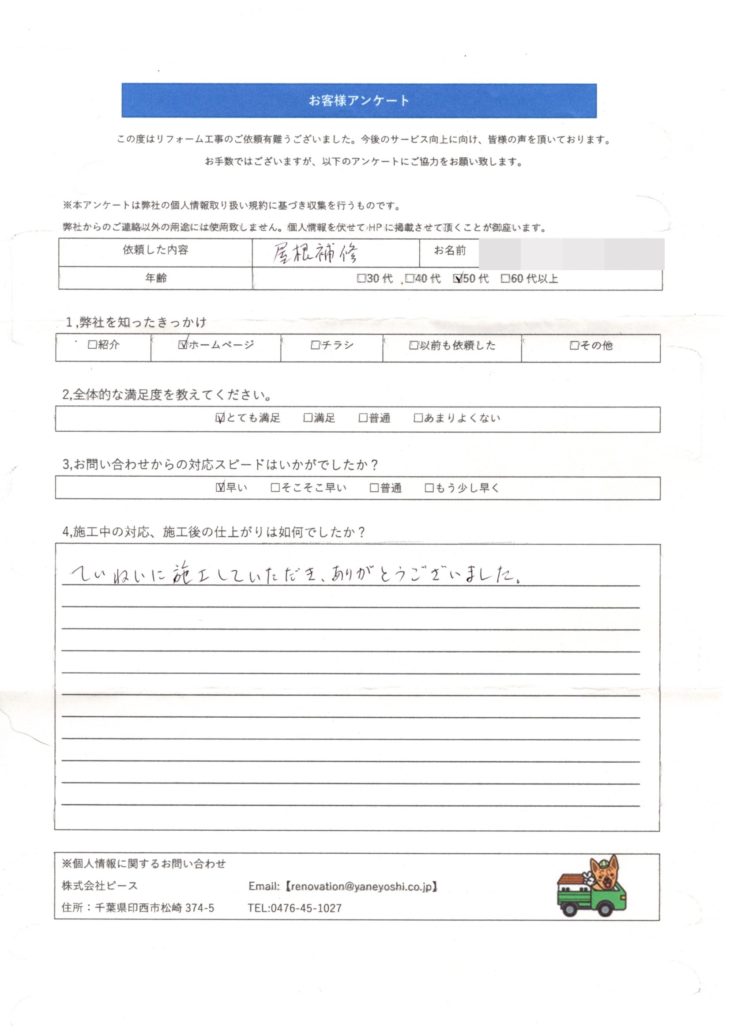 お客様アンケート
この度はリフォーム工事のご依頼有難うございました。今後のサービス向上に向け、皆様の声を頂いております。
お手数ではございますが、以下のアンケートにご協力をお願い致します。
※本アンケートは弊社の個人情報取り扱い規約に基づき収集を行うものです。
弊社からのご連絡以外の用途には使用致しません。個人情報を伏せてHPに掲載させて頂くことが御座います。
依頼した内容 屋根補修 お名前
年齢 □30代 □40代 ☑50代 □60代以上
1,弊社を知ったきっかけ
□紹介 ☑ホームページ □チラシ □以前も依頼した □その他
2,全体的な満足度を教えてください。
☑とても満足 □満足 □普通 □あまりよくない
3,お問い合わせからの対応スピードはいかがでしたか？
☑早い □そこそこ早い □普通 □もう少し早く
4,施工中の対応、施工後の仕上がりは如何でしたか？
ていねいに施工していただき、ありがとうございました。
※個人情報に関するお問い合わせ
株式会社ピース Email:【renovation@yaneyoshi.co.jp】
住所：千葉県印西市松崎374-5 TEL:0476-45-1027